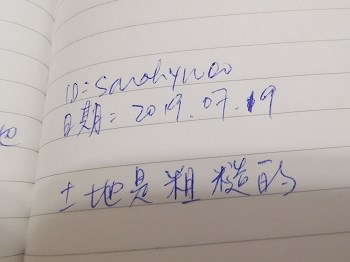 ID:sarahywoo
日期:2019.07.19
土地是粗糙的